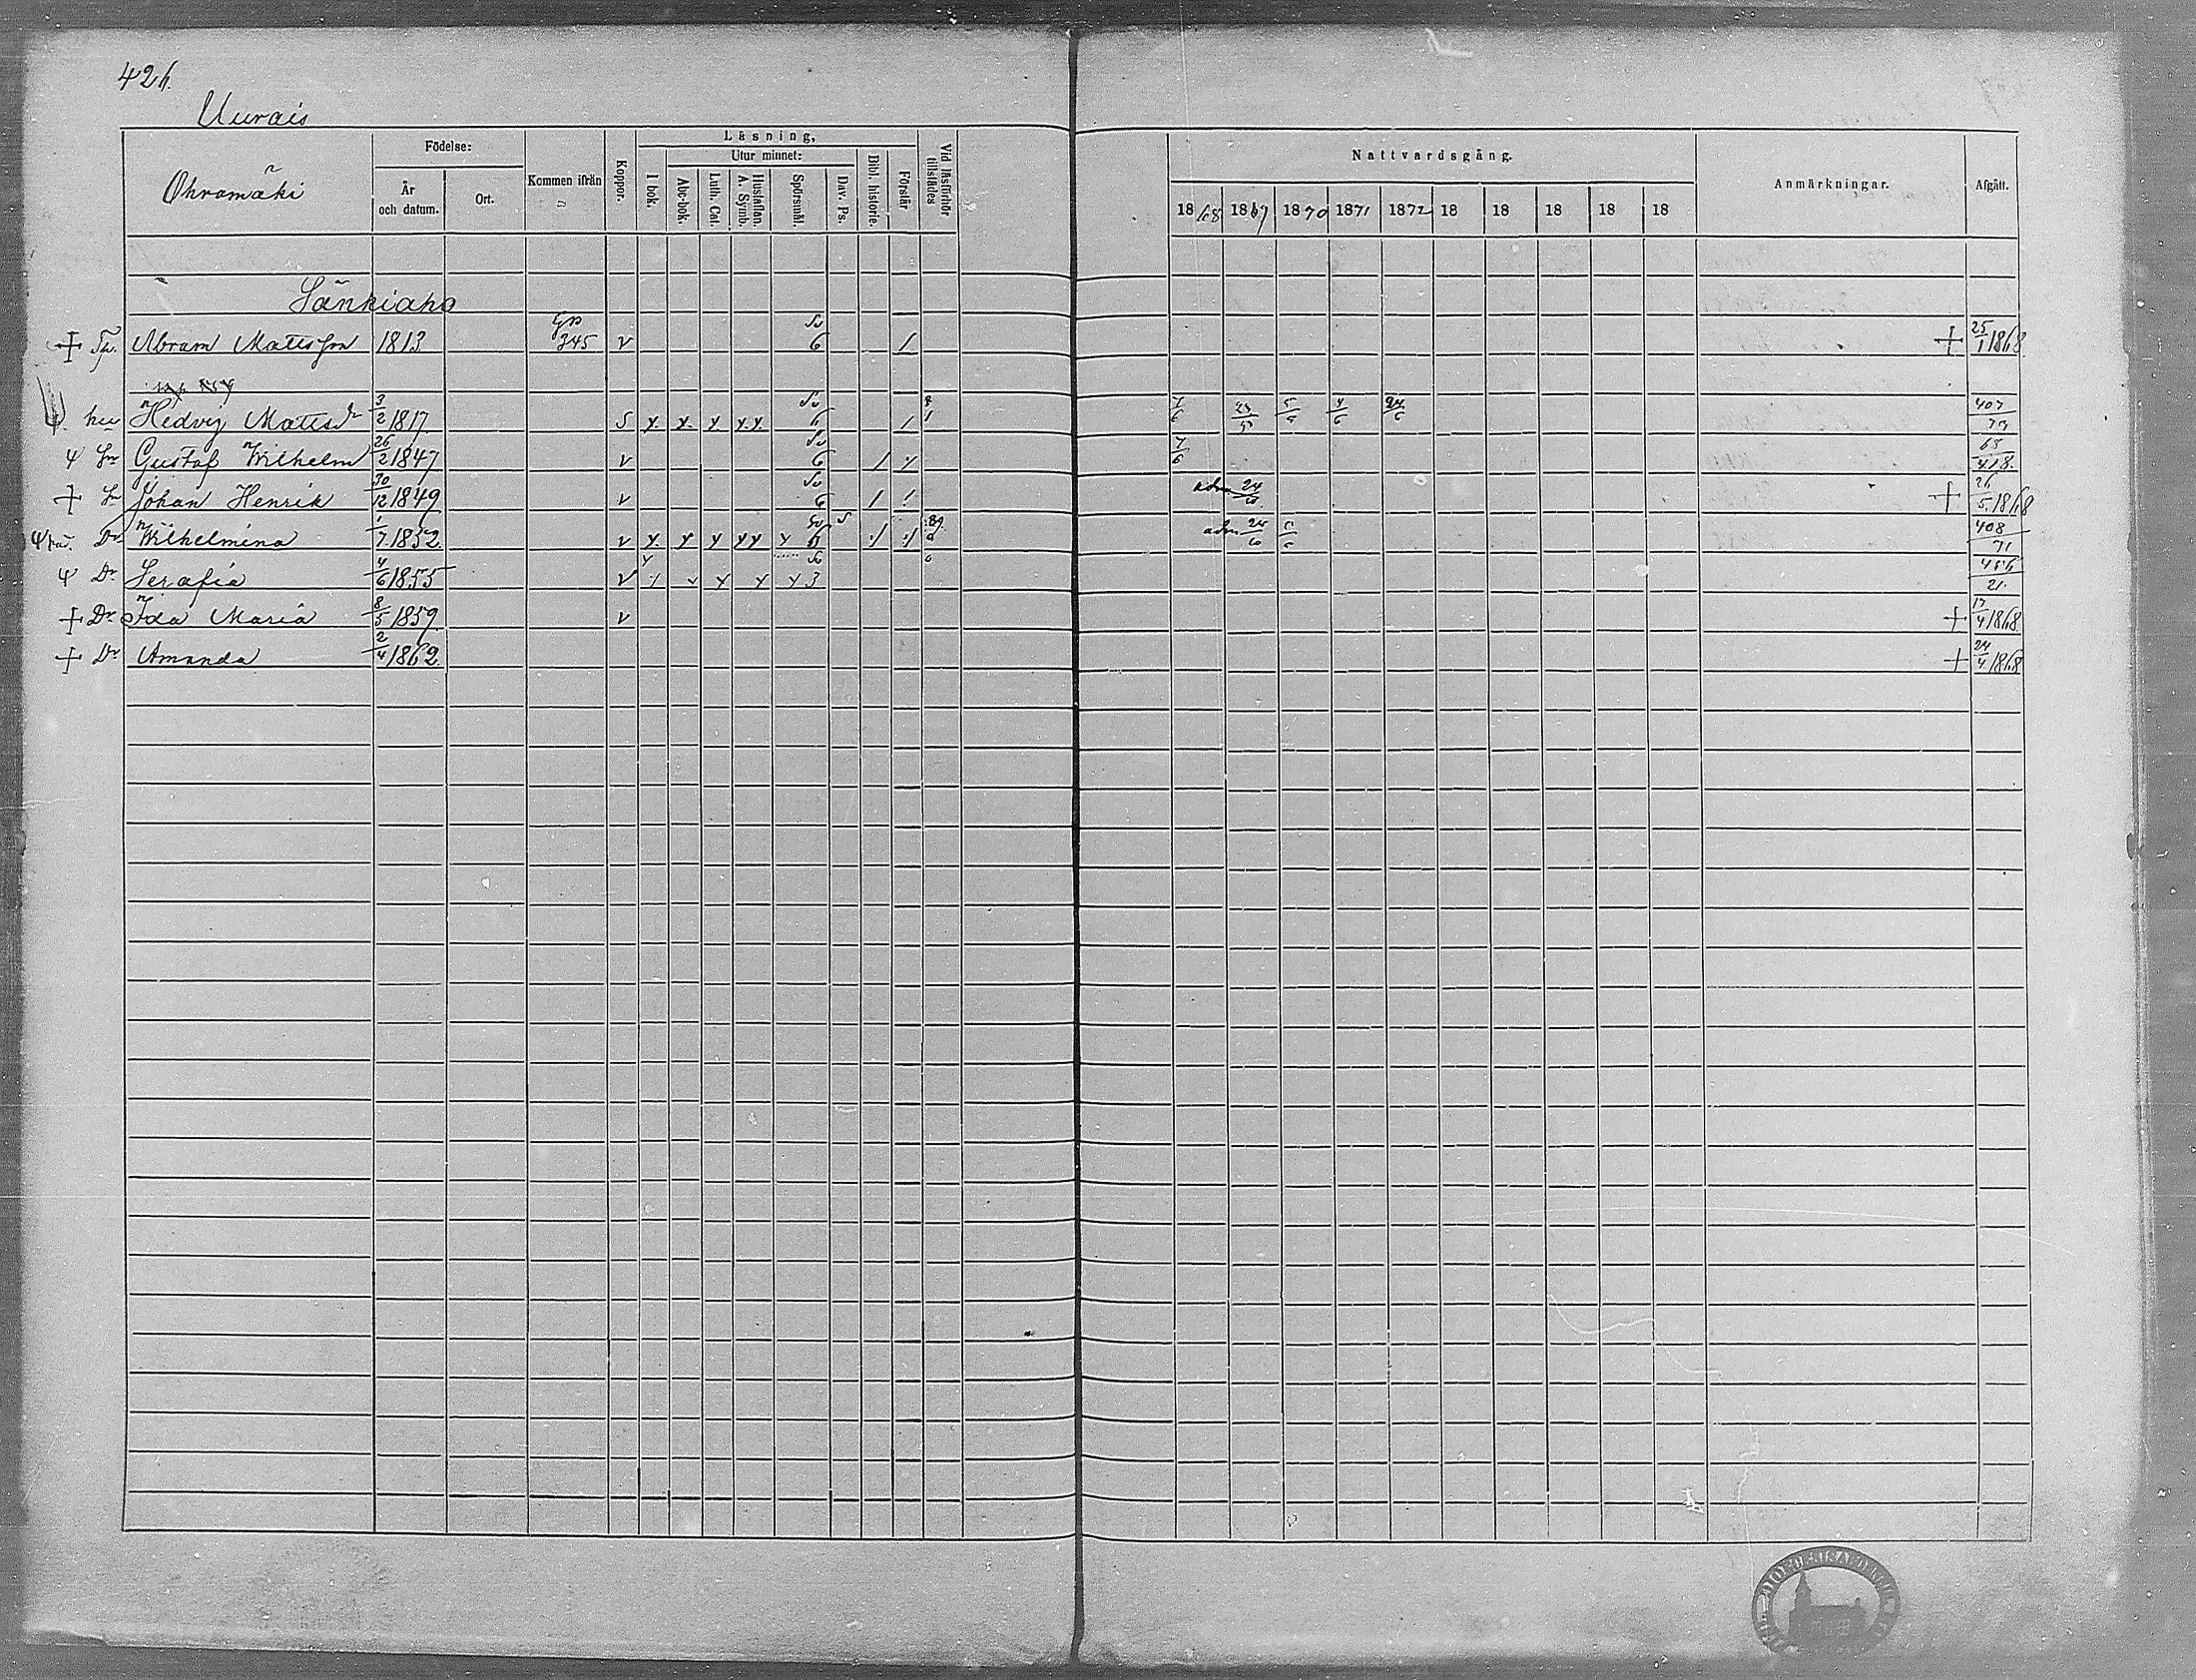 426.
Uurais
Ohramäki
Födelse:
År
och datum.
Ort.
Kommen ifrån
Koppor.
Läsning,
Utur minnet:
I bok.
Abc-bok.
Luth. Cat.
Hustaflan.
A. Symb.
Spörsmål.
Dav. Ps.
Bibl. historie.
Förstår
Vid läsförhör
tillstädes
Nattvardsgång.
1868 1869 1870 1871 1872 18 18 18 18 18
Anmärkningar.
Afgått.
Sänkiaho
Abram Mattsson 1813 345 v 6 / + 25/1 1868
Hedvig Mattsdr 3/2 1817 S y y y y y 6 / 7/6 5/6 4/6 24/6 407/73
Gustaf Wilhelm 26/2 1847 v 6 / 7/6 418.
+ Johan Henrik 30/12 1849 v 6 / / + 26/5 1868
Dr Wilhelmina 1/7 1852 v y y y y y y adm 408/71
Dr Serafia 4/6 1855 v y y y 3 21.
+ Dr Ida Maria 8/5 1859 v + 17/4 1868
+ Dr Amanda 2/4 1862 + 24/4 1868